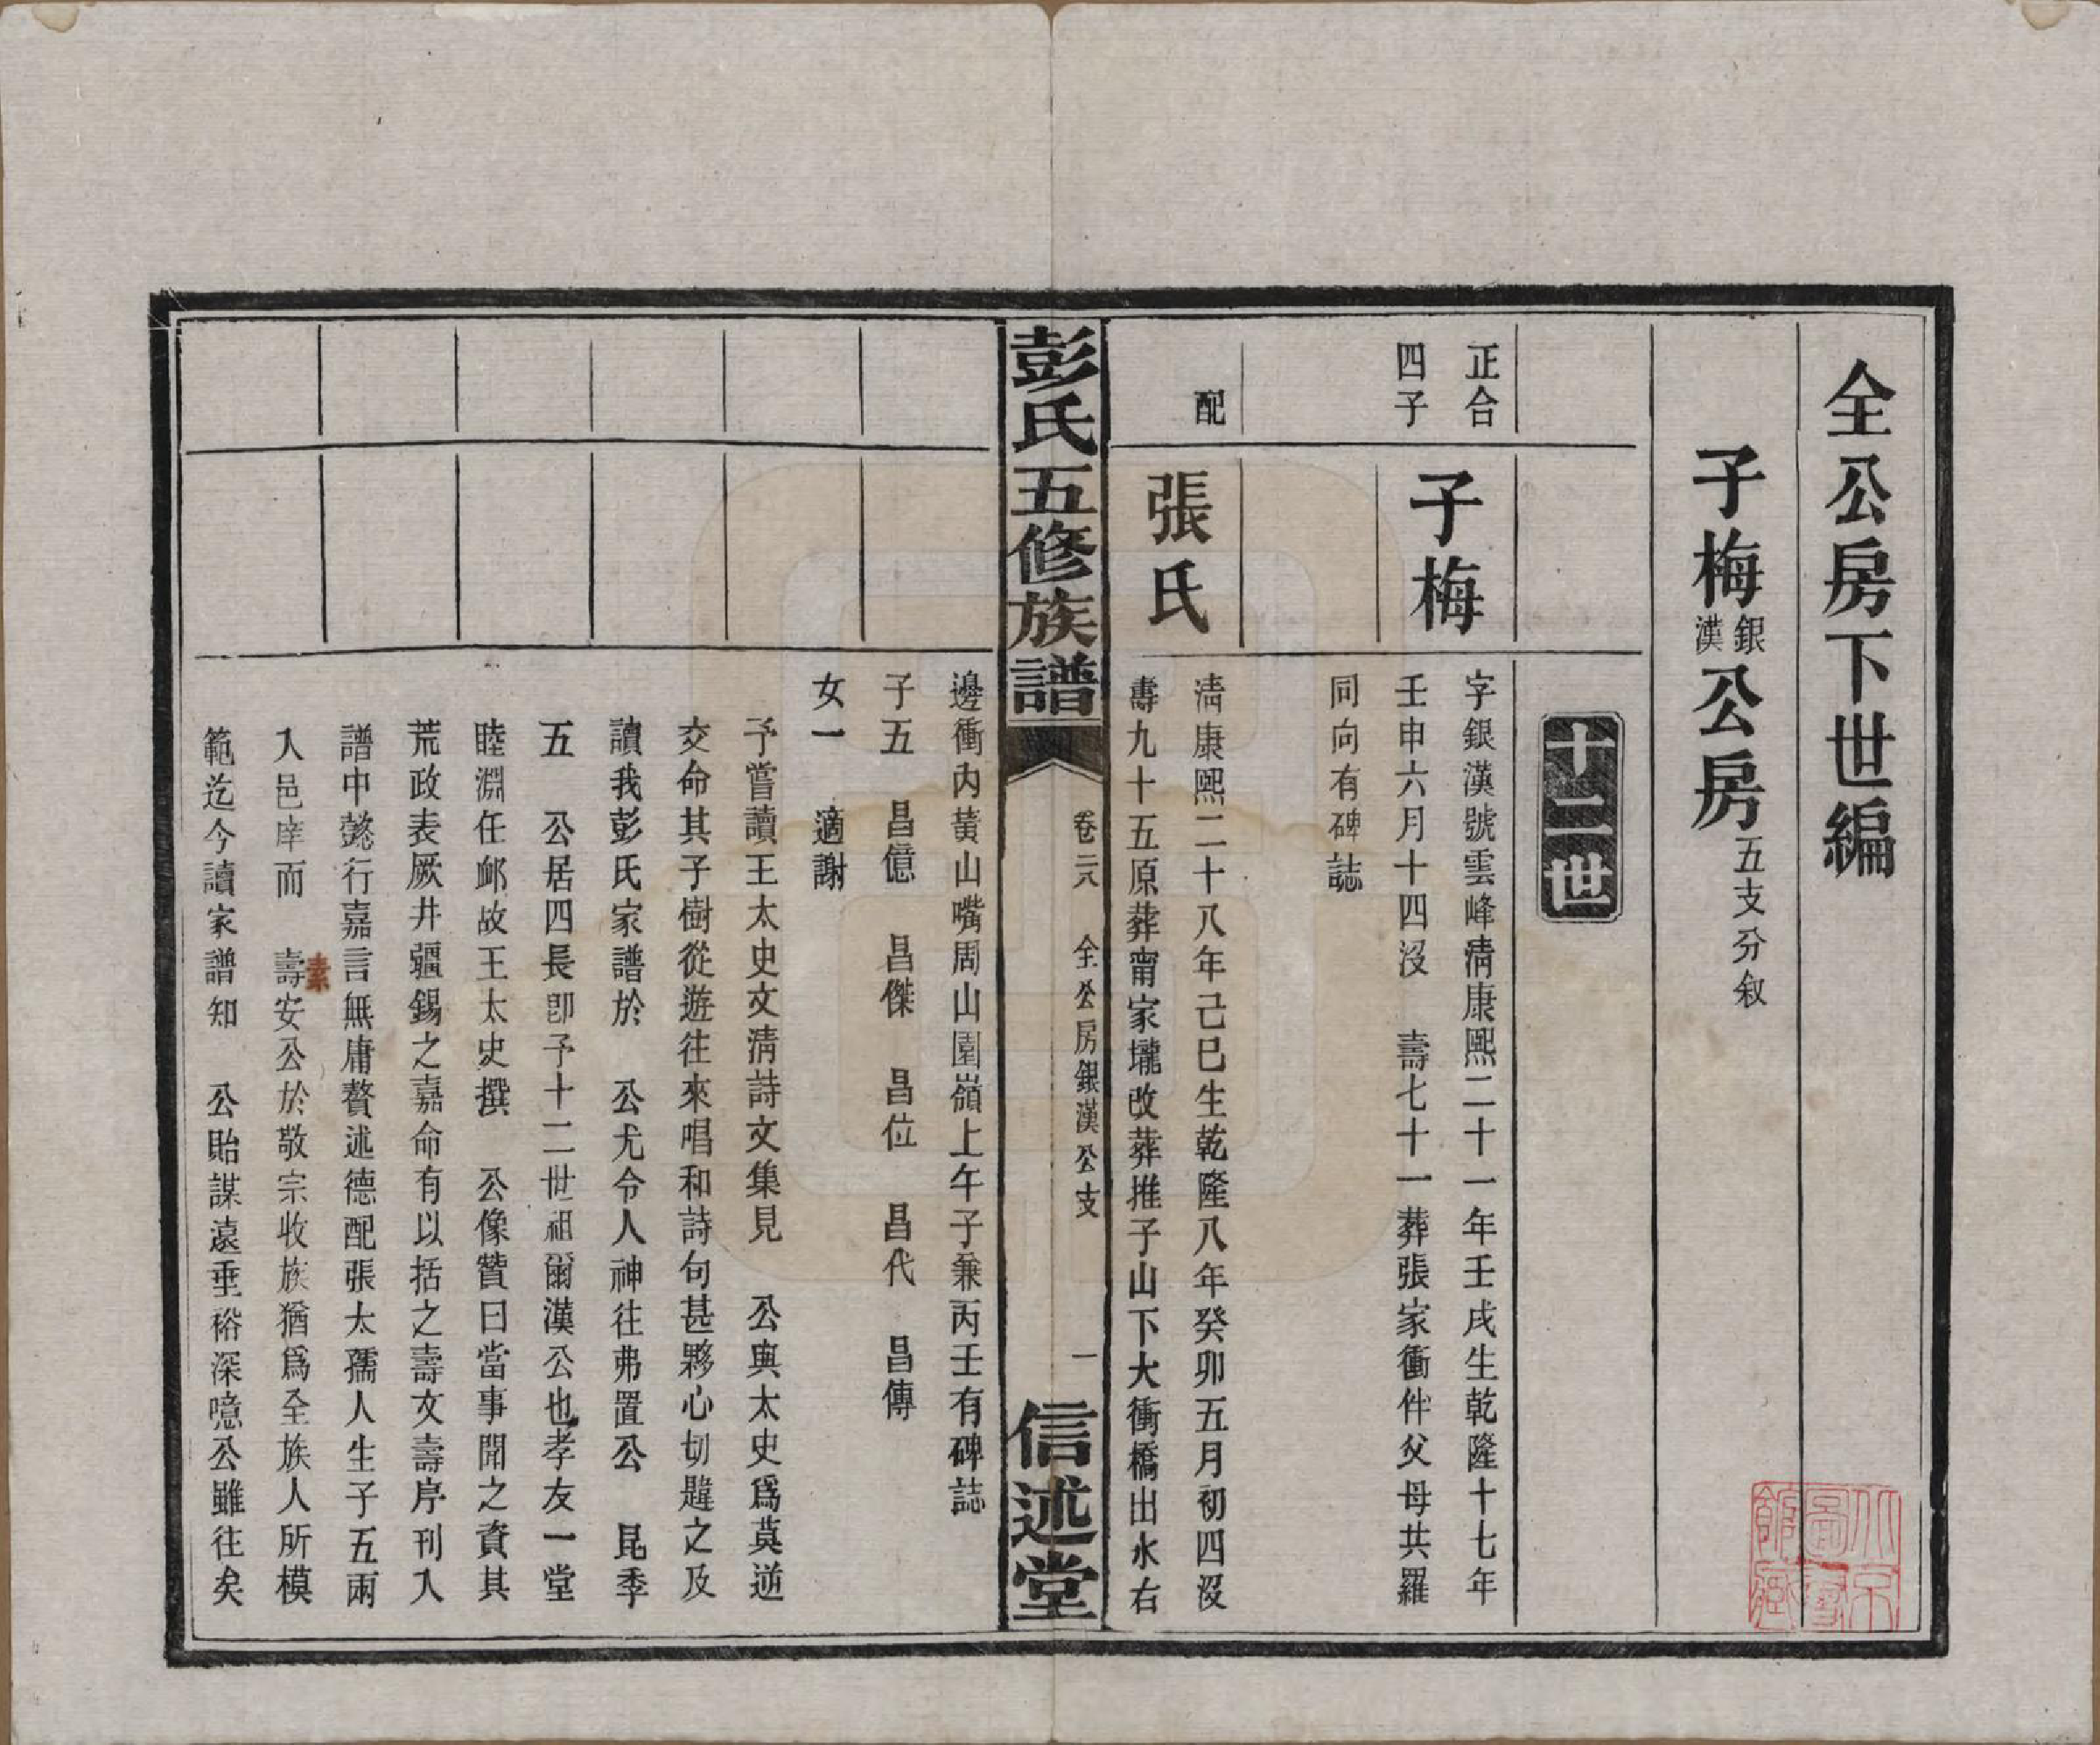 全公房下世編
子梅銀漢公房五支分叙
十二世
正合
四子
子梅
字銀漢號雲峰清康熙二十一年壬戌生乾隆十七年
壬申六月十四沒　壽七十一葬張家衝件父母共羅
同向有碑誌
配
張氏
清康熙二十八年己巳生乾隆八年癸卯五月初四沒
壽九十五原葬甯家壠改葬推子山下大衝橋出水右
彭氏五修族譜
卷二八　全公房銀漢公支
一
信述堂
邊衝內黃山嘴周山園嶺上午子兼丙壬有碑誌
子五　昌億　昌傑　昌位　昌代　昌傳
女一　適謝
予嘗讀王太史文清詩文集見　公與太史爲莫逆
交命其子樹從遊往來唱和詩句甚夥心切韙之及
讀我彭氏家譜於　公尤令人神往弗置公　昆季
五　公居四長卽予十二世祖爾漢公也孝友一堂
睦淵任邮故王太史撰　公像贊曰當事聞之資其
荒政表厥井疆錫之嘉命有以括之壽文壽序刊入
譜中懿行嘉言無庸贅述德配張太孺人生子五兩
入邑庠而　壽安公於敬宗收族猶爲全族人所模
素
範迄今讀家譜知　公貽謀遠垂裕深噫公雖往矣
北京圖書館藏